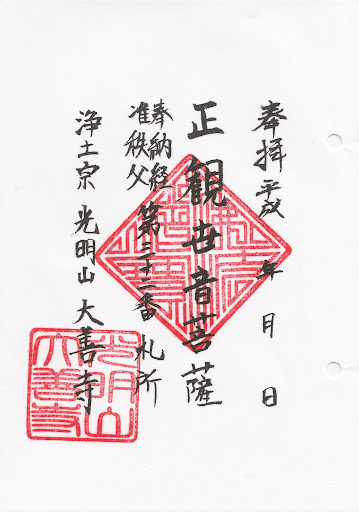 奉拝 平成 年 月 日
正観世音菩薩
奉納経
准秩父 第三十二番 札所
浄土宗 光明山 大善寺
光明山
大善寺